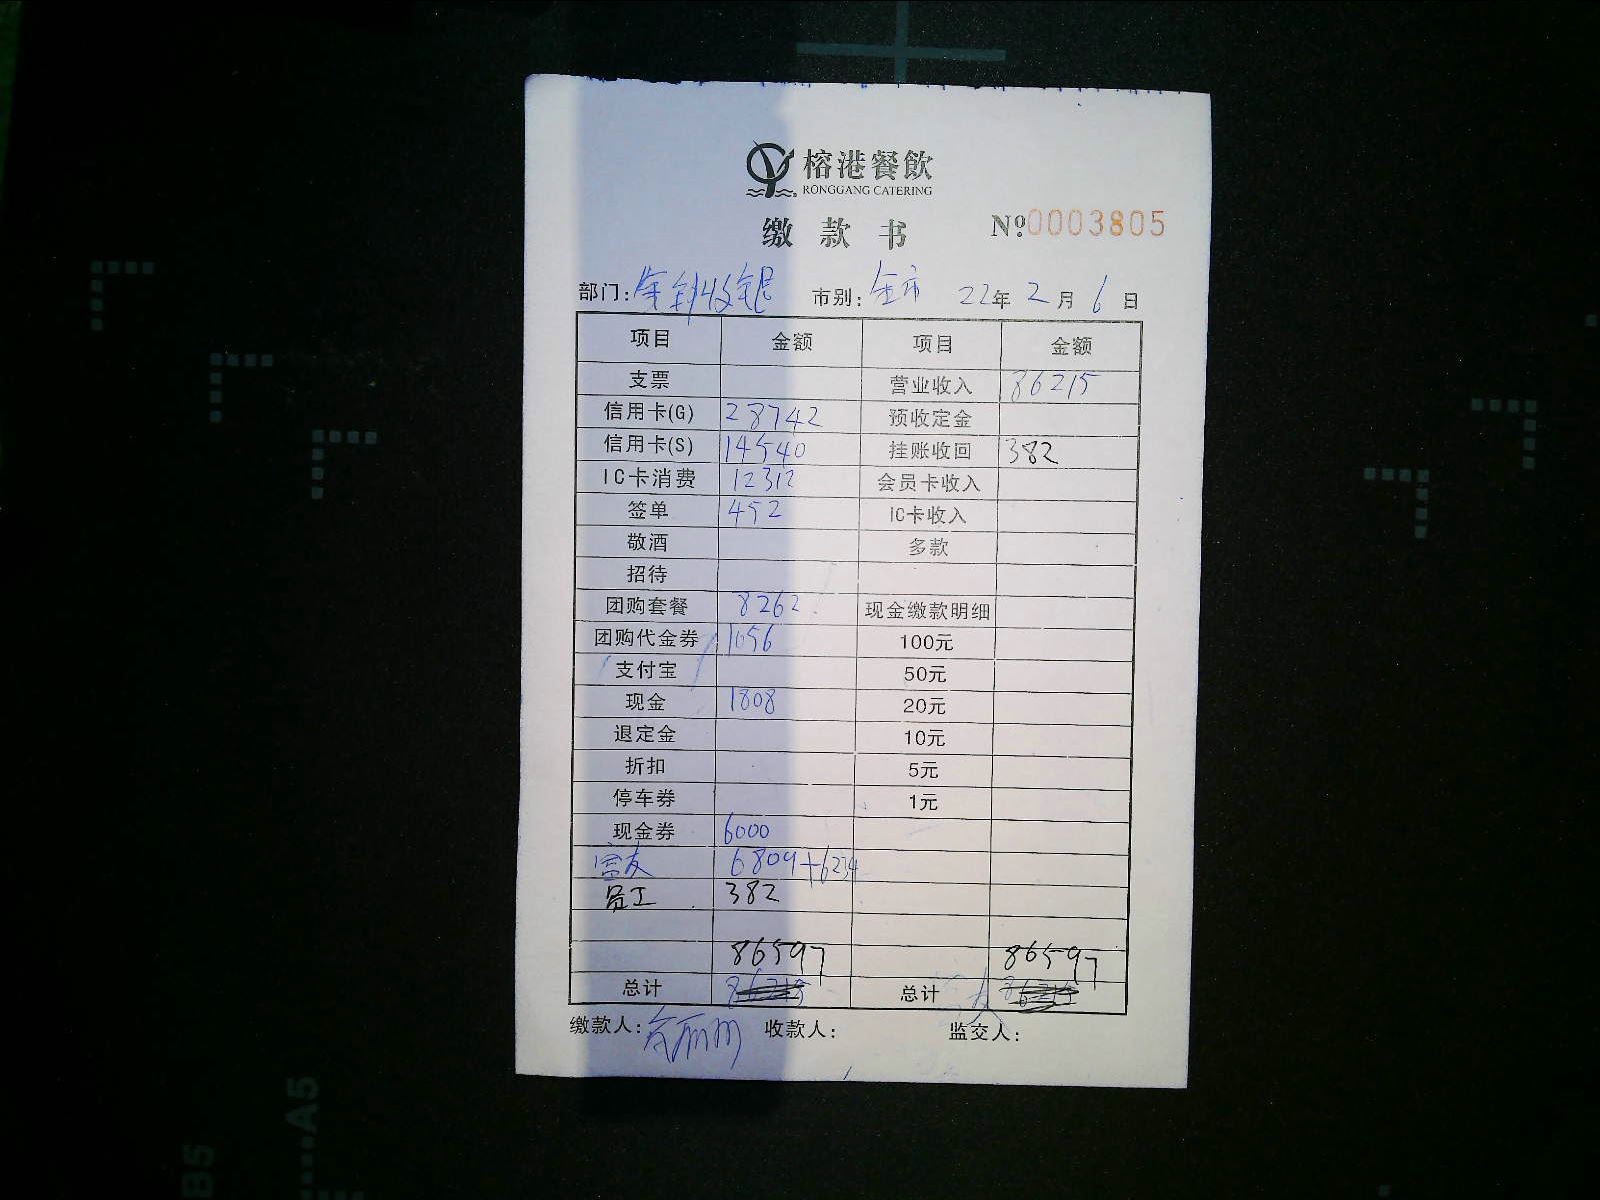 榕港餐飲
RONGGANG CATERING
缴款书 №0003805
部门: 收银 市别: 全市 22年2月6日
项目 金额 项目 金额
支票 营业收入 86215
信用卡(G) 28742 预收定金
信用卡(S) 14540 挂账收回 382
IC卡消费 12312 会员卡收入
签单 452 IC卡收入
敬酒 多款
招待
团购套餐 8262 现金缴款明细
团购代金券 1056 100元
支付宝 50元
现金 1808 20元
退定金 10元
折扣 5元
停车券 1元
现金券 6000
富友 6809+6234
员工 382
86597 86597
总计 86215 总计 86215
缴款人: 收款人: 监交人:
B5
A5